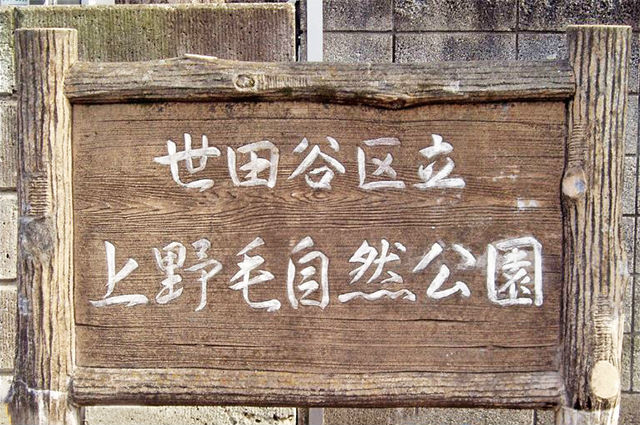 世田谷区立
上野毛自然公園